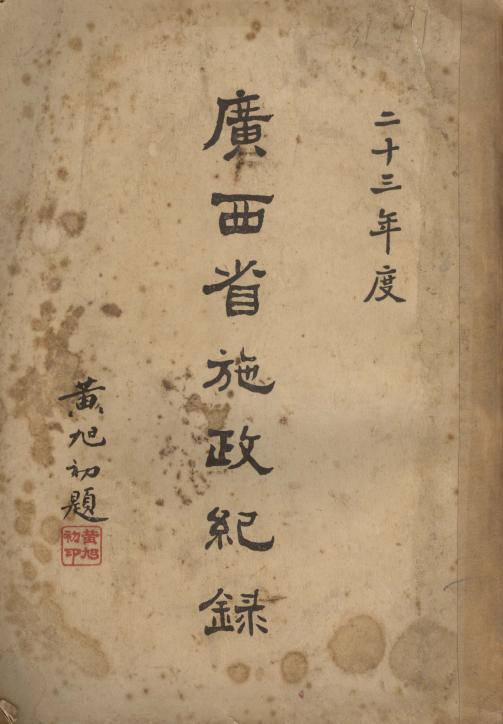 二十三年度
廣西省施政紀録
黃旭初題
黃旭初印